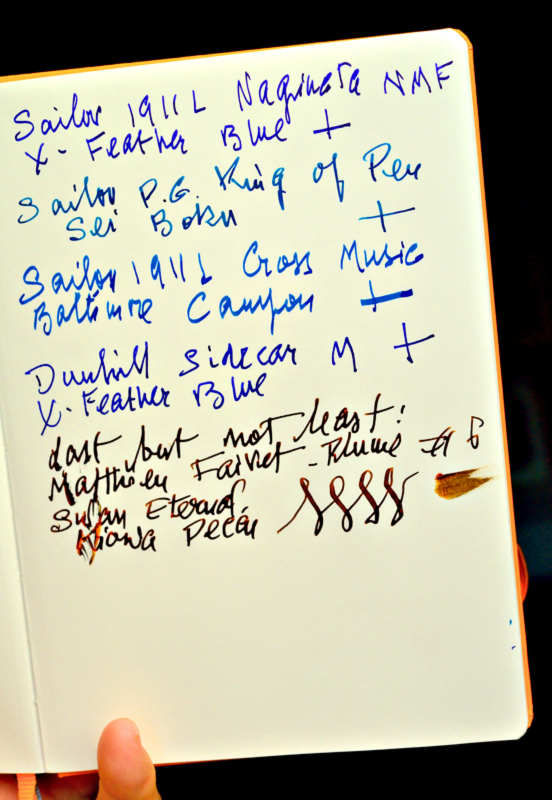 Sailor 1911 L Naginata NMF
X-Feather Blue +
Sailor P.G. King of Pen
Sei Boku +
Sailor 1911 L Cross Music
Baltimore Canyon +
Dunhill Sidecar M +
X-Feather Blue
Last but not least:
Matthieu Faivet-Plume # 6
Eternal
Kiowa Pecan